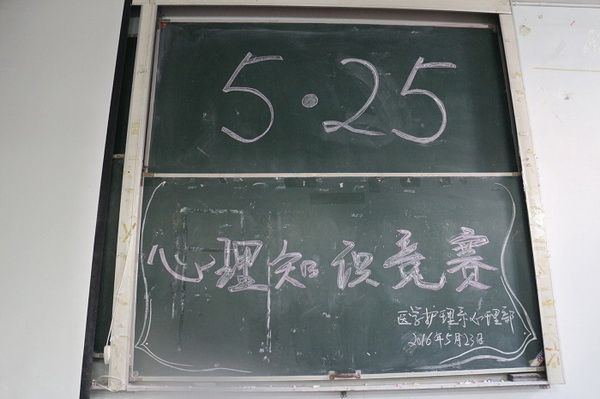 5·25
心理知识竞赛
医学护理系心理部
2016年5月23日